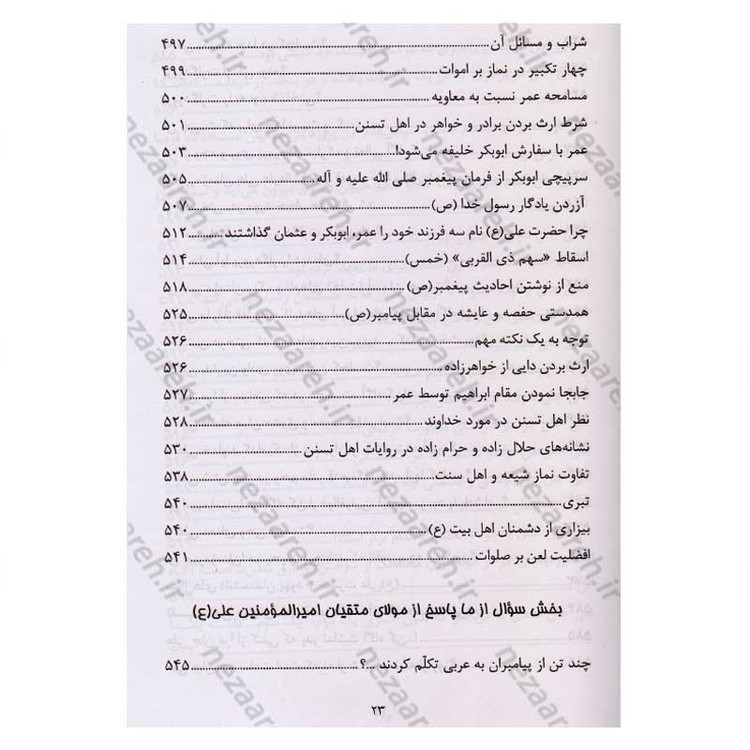 شراب و مسائل آن ۴۹۷
چهار تکبیر در نماز بر اموات ۴۹۹
مسامحه عمر نسبت به معاویه ۵۰۰
شرط ارث بردن برادر و خواهر در اهل تسنن ۵۰۱
عمر با سفارش ابوبکر خلیفه می‌شود! ۵۰۳
سرپیچی ابوبکر از فرمان پیغمبر صلی الله علیه و آله ۵۰۵
آزردن یادگار رسول خدا (ص) ۵۰۷
چرا حضرت علی(ع) نام سه فرزند خود را عمر، ابوبکر و عثمان گذاشتند ۵۱۲
اسقاط «سهم ذی القربی» (خمس) ۵۱۴
منع از نوشتن احادیث پیغمبر(ص) ۵۱۸
همدستی حفصه و عایشه در مقابل پیامبر(ص) ۵۲۵
توجه به یک نکته مهم ۵۲۶
ارث بردن دایی از خواهرزاده ۵۲۶
جابجا نمودن مقام ابراهیم توسط عمر ۵۲۷
نظر اهل تسنن در مورد خداوند ۵۲۸
نشانه‌های حلال زاده و حرام زاده در روایات اهل تسنن ۵۳۰
تفاوت نماز شیعه و اهل سنت ۵۳۸
تبری ۵۴۰
بیزاری از دشمنان اهل بیت (ع) ۵۴۰
افضلیت لعن بر صلوات ۵۴۱
بخش سؤال از ما پاسخ از مولای متقیان امیرالمؤمنین علی(ع)
چند تن از پیامبران به عربی تکلّم کردند ...؟ ۵۴۵
۲۳
nezaareh.ir